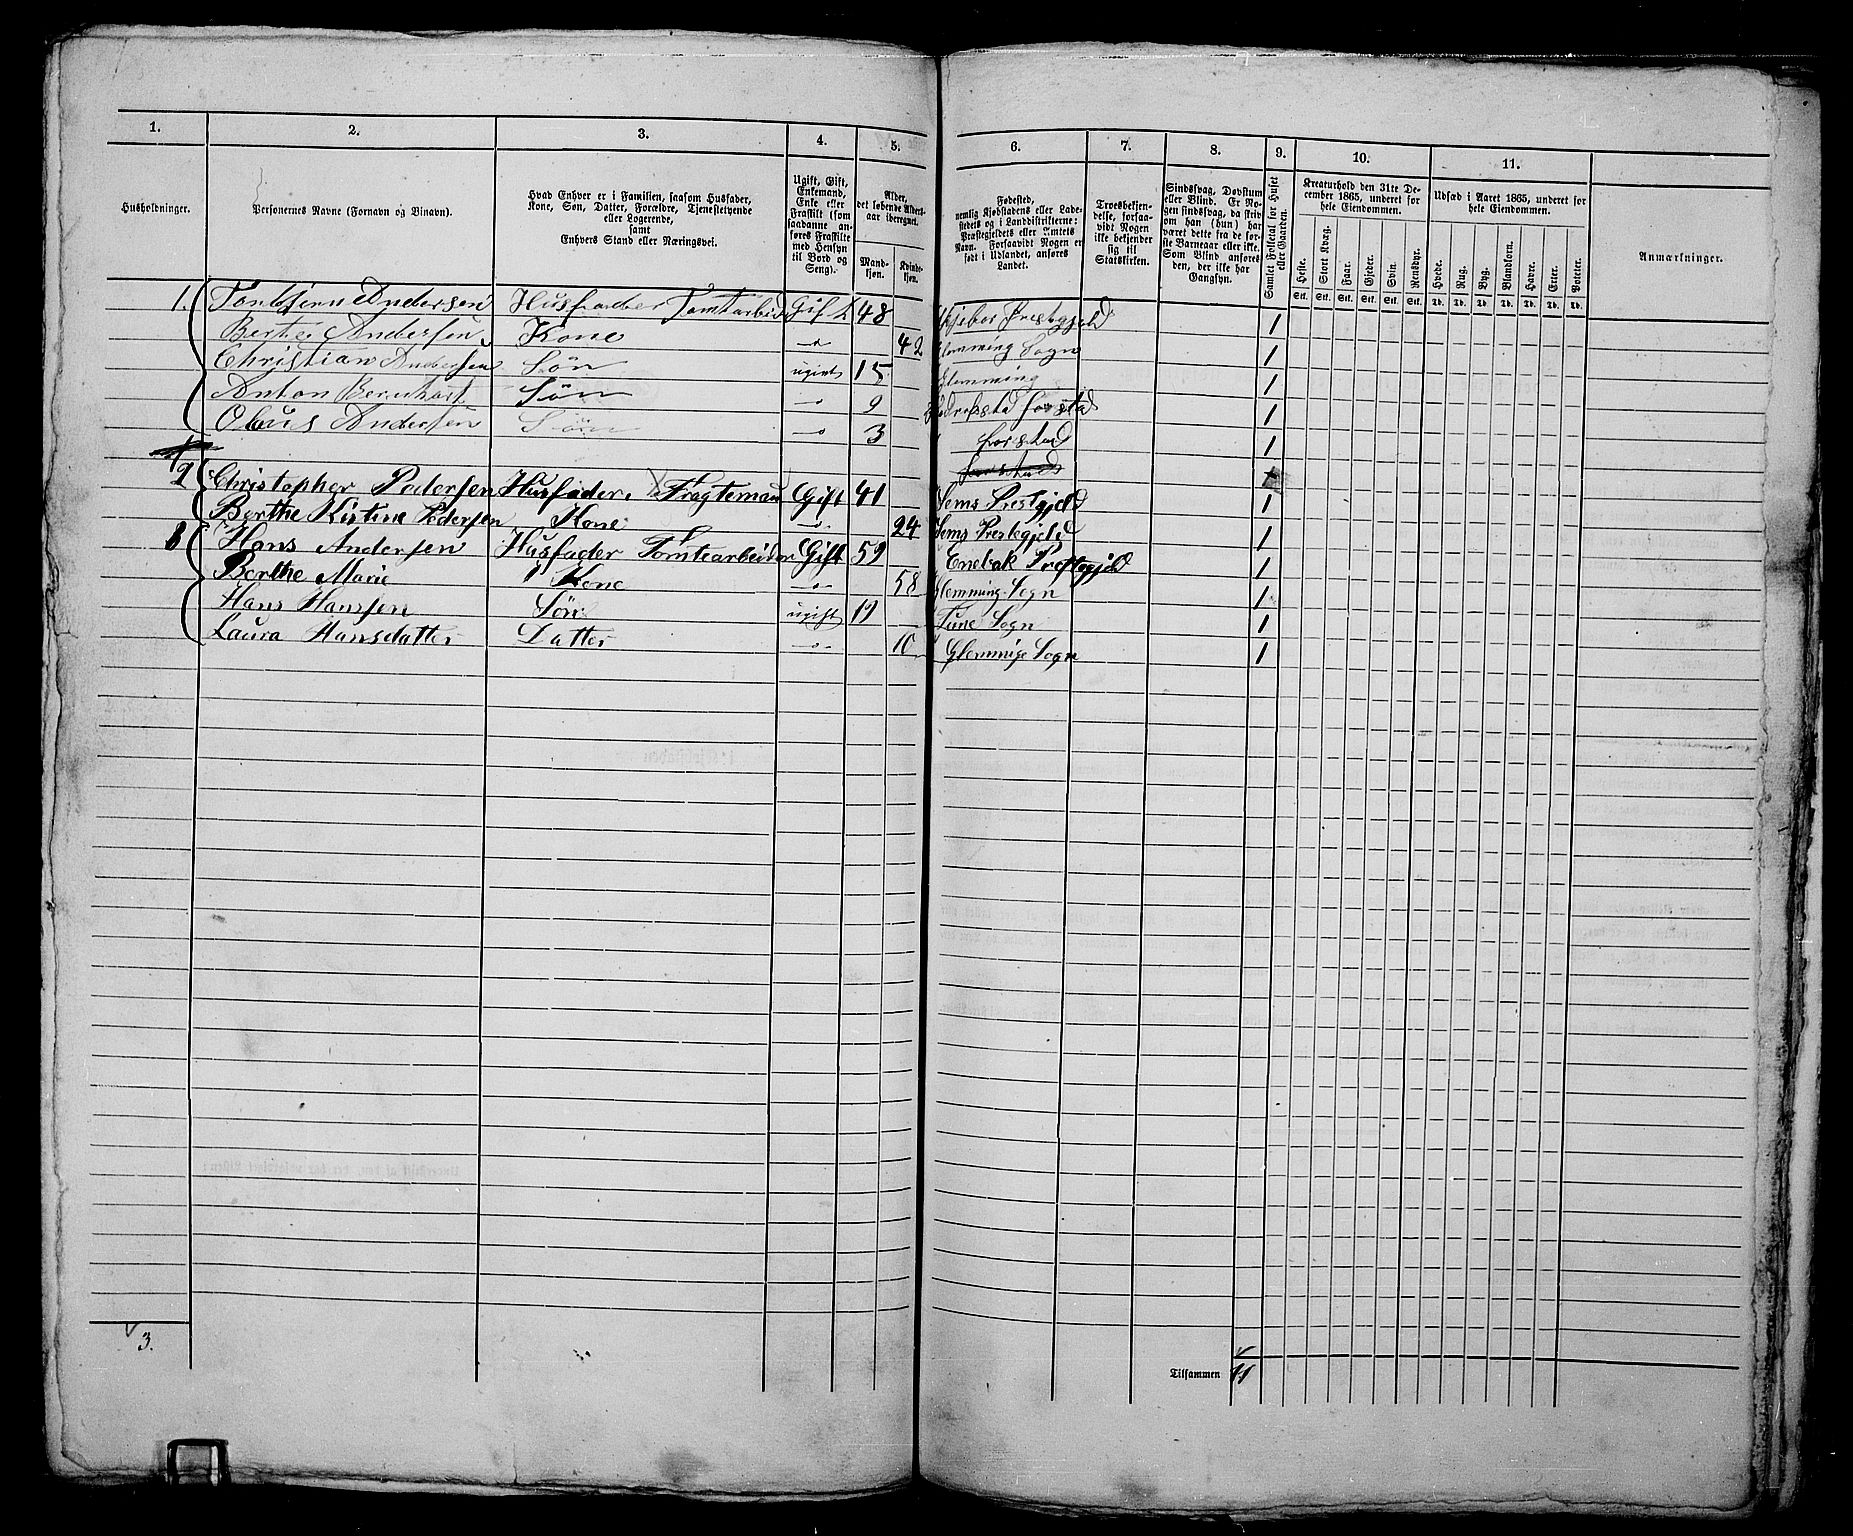 1. 2. 3. 4. 5. 6. 7. 8. 9. 10. 11.
Husholdninger.
Personernes Navne (Fornavn og Binavn).
Hvad Enhver er i Familien, saasom Husfader,
Kone, Søn, Datter, Forældre, Tjenestetyende
eller Logerende,
samt
Enhvers Stand eller Næringsvei.
Ugift, Gift,
Enkemand,
Enke eller
Fraskilt (som
saadanne an-
føres Fraskilte
med Hensyn
til Bord og
Seng).
Alder,
det løbende Alders-
aar iberegnet.
Mand-
kjøn.
Kvinde-
kjøn.
Fødested,
nemlig Kjøbstadens eller Lade-
stedets og i Landdistrikterne:
Præstegjeldets eller Amtets
Navn. Forsaavidt Nogen er
født i Udlandet, anføres
Landet.
Troesbekjen-
delse, forsaa-
vidt Nogen
ikke bekjender
sig til
Statskirken.
Sindssvag, Døvstum
eller Blind. Er No-
gen sindssvag, da skriv
om han (hun) har
været dette fra de før-
ste Barneaar eller ikke.
Som Blind anføres
den, der ikke har
Gangsyn.
Samlet Folketal for Huset
eller Gaarden.
Kreaturhold den 31te De-
cember 1865, underet for
hele Eiendommen.
Heste. Stort Kvæg. Faar. Gjeder. Svin. Rensdyr.
Stk. Stk. Stk. Stk. Stk. Stk.
Udsæd i Aaret 1865, underet for
hele Eiendommen.
Hvede. Rug. Byg. Blandkorn. Havre. Erter. Poteter.
Td. Td. Td. Td. Td. Td. Td.
Anmærkninger.
1. Andersen Husfader Tomtarbeid Gift 48 Prestgjeld 1
Berte Andersen Kone " 42 Glemming Sogn 1
Christian Andersen Søn ugivt 15 Glemming 1
Anton Bernhart Søn " 9 Fredrikstad forstad 1
Olaus Andersen Søn " 3 forstad 1
forstad
2 Christopher Pedersen Husfader. Fragtemau Gift 41 Sems Prestgjeld 1
Berthe Kistine Pedersen Kone " 24 Sems Prestegjeld 1
3 Hans Andersen Husfader Tomtearbeider Gift 59 Enebak Prestegjeld 1
Berthe Marie " Kone " 58 Glemming Sogn 1
Hans Hanssen Søn ugift 19 Tune Sogn 1
Laura Hansdatter Datter " 10 Glemmige Sogn 1
3.
Tilsammen 11